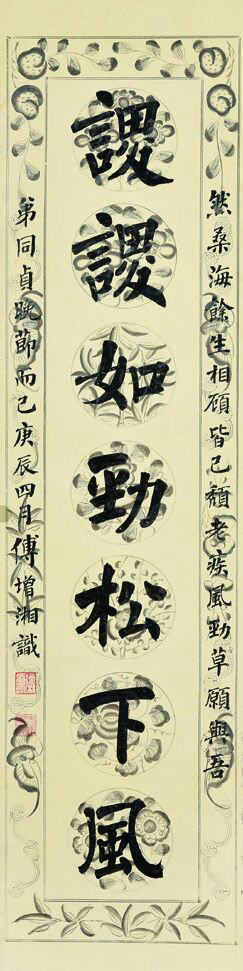 然桑海餘生相顧皆已頹老疾風勁草願與吾
謖謖如勁松下風
弟同貞晚節而已庚辰四月傅增湘識